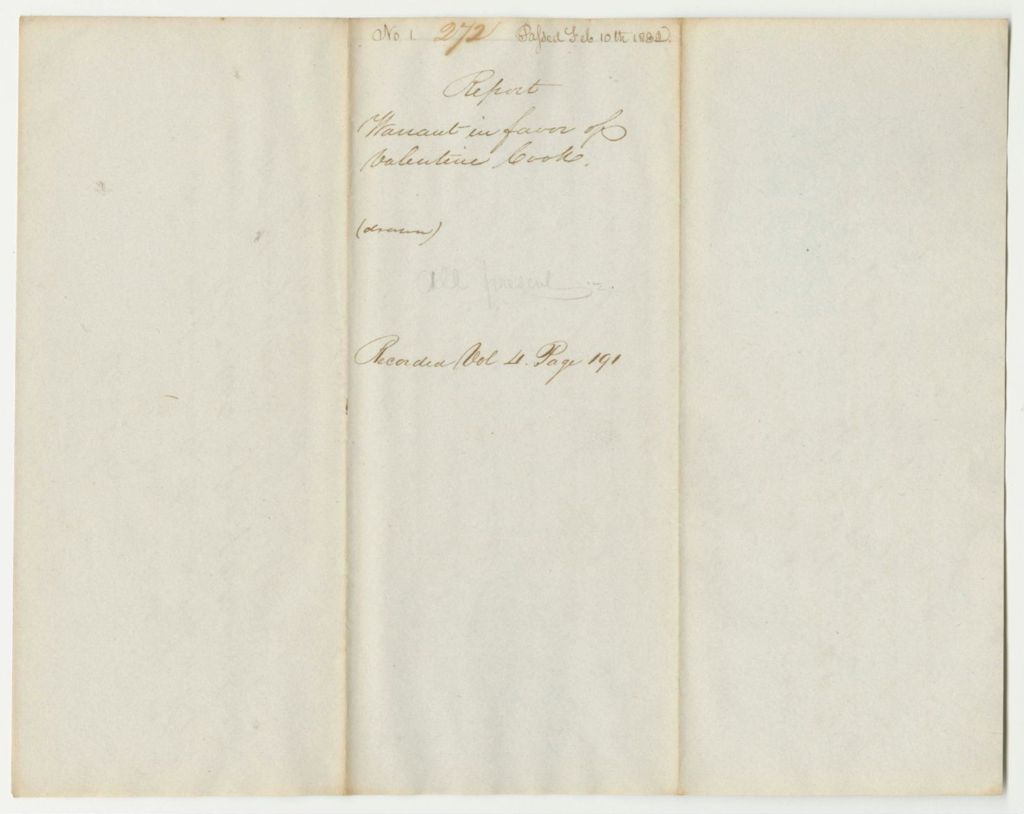 No 1 272 Passed Feb. 10th 1832.
Report
Warrant in favor of
Valentine Cook.
(drawn)
All present
Recorded Vol 4. Page 191